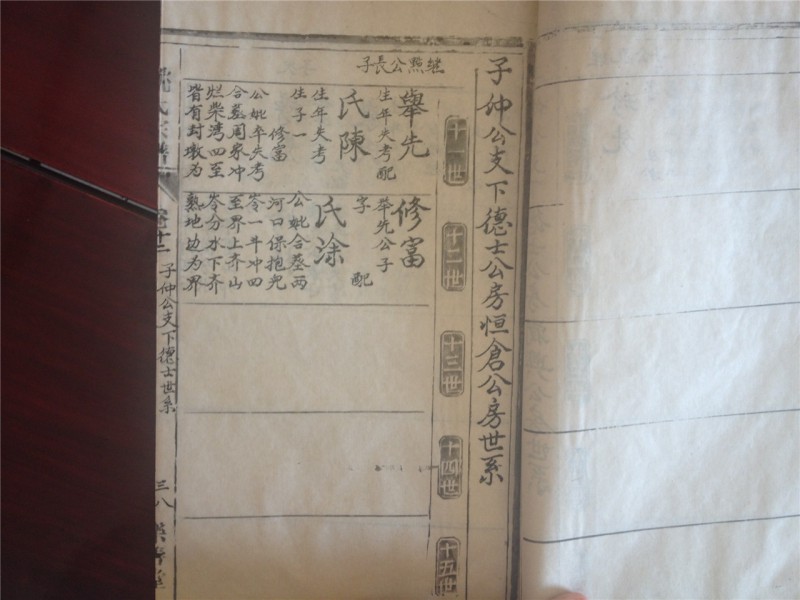 子仲公支下德士公房恒倉公房世系
十一世
十二世
十三世
十四世
十五世
继點公長子
舉先
生年失考配
氏陳
生年失考
生子一
修富
公妣卒失考
合墓周家冲
烂柴湾四至
皆有封墩为
修富
舉先公子
字 配
氏涂
公妣合墓两
河口保抱兒
岺一斗冲四
至界上齐山
岺分水下齐
熟地边为界
子仲公支下德士世系
三八